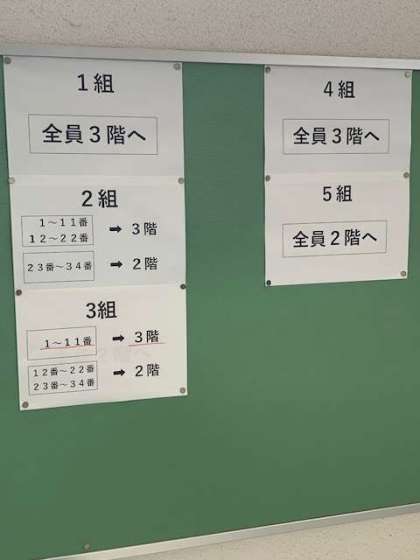 1組
全員3階へ
2組
1〜11番
12〜22番
➡ 3階
23番〜34番 ➡ 2階
3組
1〜11番 ➡ 3階
12番〜22番
23番〜34番
➡ 2階
4組
全員3階へ
5組
全員2階へ